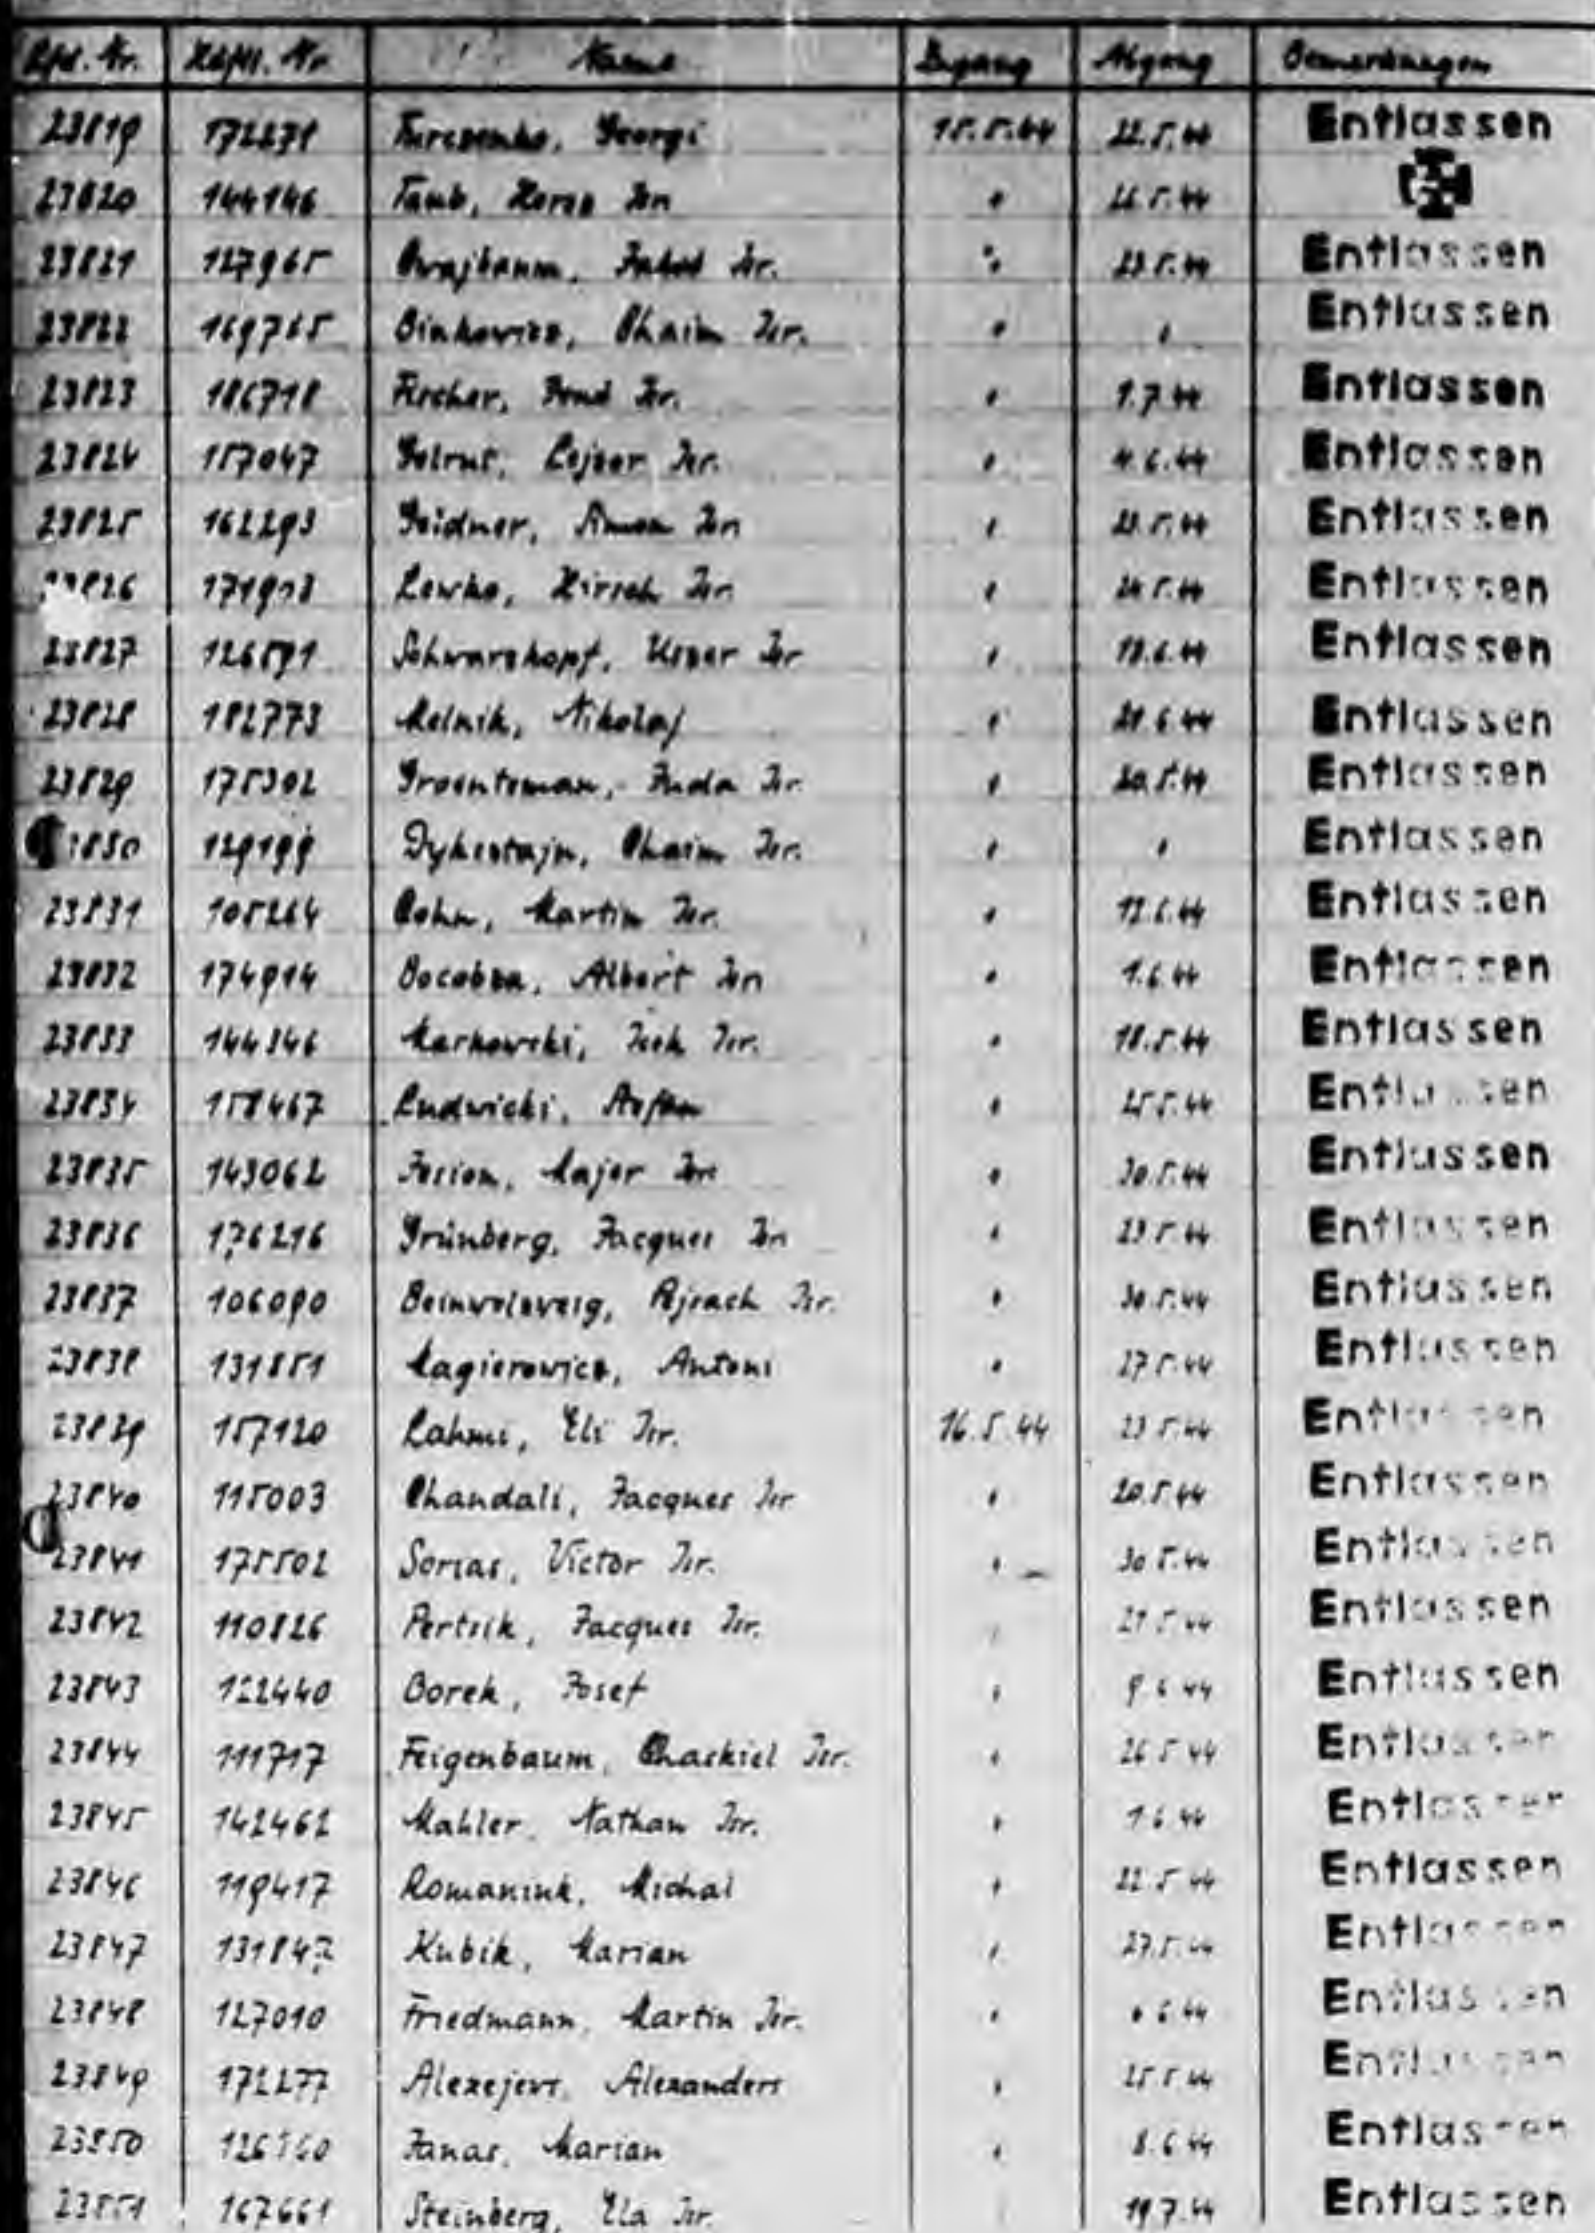 Lfd. Nr. Häftl. Nr. Name Zugang Abgang Bemerkungen
23819 172271 Georgi 15.5.44 22.5.44 Entlassen
23820 144146 Taub, Isr. " 26.5.44
23821 127965 Isr. " 23.5.44 Entlassen
23822 169765 Binkowicz, Chaim Isr. " " Entlassen
23823 186718 Isr. " 1.7.44 Entlassen
23824 157047 Lejzer Isr. " 4.6.44 Entlassen
23825 162293 Geidner, Simon Isr. " 23.5.44 Entlassen
23826 Lewko, Hirsch Isr. " 24.5.44 Entlassen
23827 126591 Schwarzkopf, Uszer Isr. " 18.6.44 Entlassen
23828 182773 Melnik, Nikolaj " 21.6.44 Entlassen
23829 175302 Groenteman, Juda Isr. " 20.5.44 Entlassen
129199 Dykestajn, Chaim Isr. " " Entlassen
23831 105264 Cohn, Martin Isr. " 12.6.44 Entlassen
23832 174914 Bocobza, Albert Isr. " 1.6.44 Entlassen
23833 144346 Markowski, Icek Isr. " 18.5.44 Entlassen
23834 158467 Ludwicki, " 25.5.44 Entlassen
23835 143062 Majer Isr. " 30.5.44 Entlassen
23836 176216 Grünberg, Jacques Isr. " 23.5.44 Entlassen
23837 106090 Beinwolzweig, Isr. " 30.5.44 Entlassen
23838 131851 Magierowicz, Antoni " 27.5.44 Entlassen
23839 157120 Lahmi, Eli Isr. 16.5.44 23.5.44 Entlassen
23840 115003 Chandali, Jacques Isr. " 20.5.44 Entlassen
23841 175502 Sorsas, Victor Isr. " 30.5.44 Entlassen
23842 110826 Pertsik, Jacques Isr. " Entlassen
23843 122440 Borek, Josef " 9.6.44 Entlassen
23844 111717 Feigenbaum, Chaskiel Isr. " 26.5.44 Entlassen
23845 142462 Mahler, Nathan Isr. " 1.6.44 Entlassen
23846 119417 Romaniuk, Michal " 22.5.44 Entlassen
23847 131847 Kubik, Marian " 27.5.44 Entlassen
23848 127010 Friedmann, Martin Isr. " 6.44 Entlassen
23849 172277 Alexejevs, Alexanders " 25.5.44 Entlassen
23850 Janas, Marian " 8.6.44 Entlassen
23851 167661 Steinberg, Ela Isr. 19.7.44 Entlassen